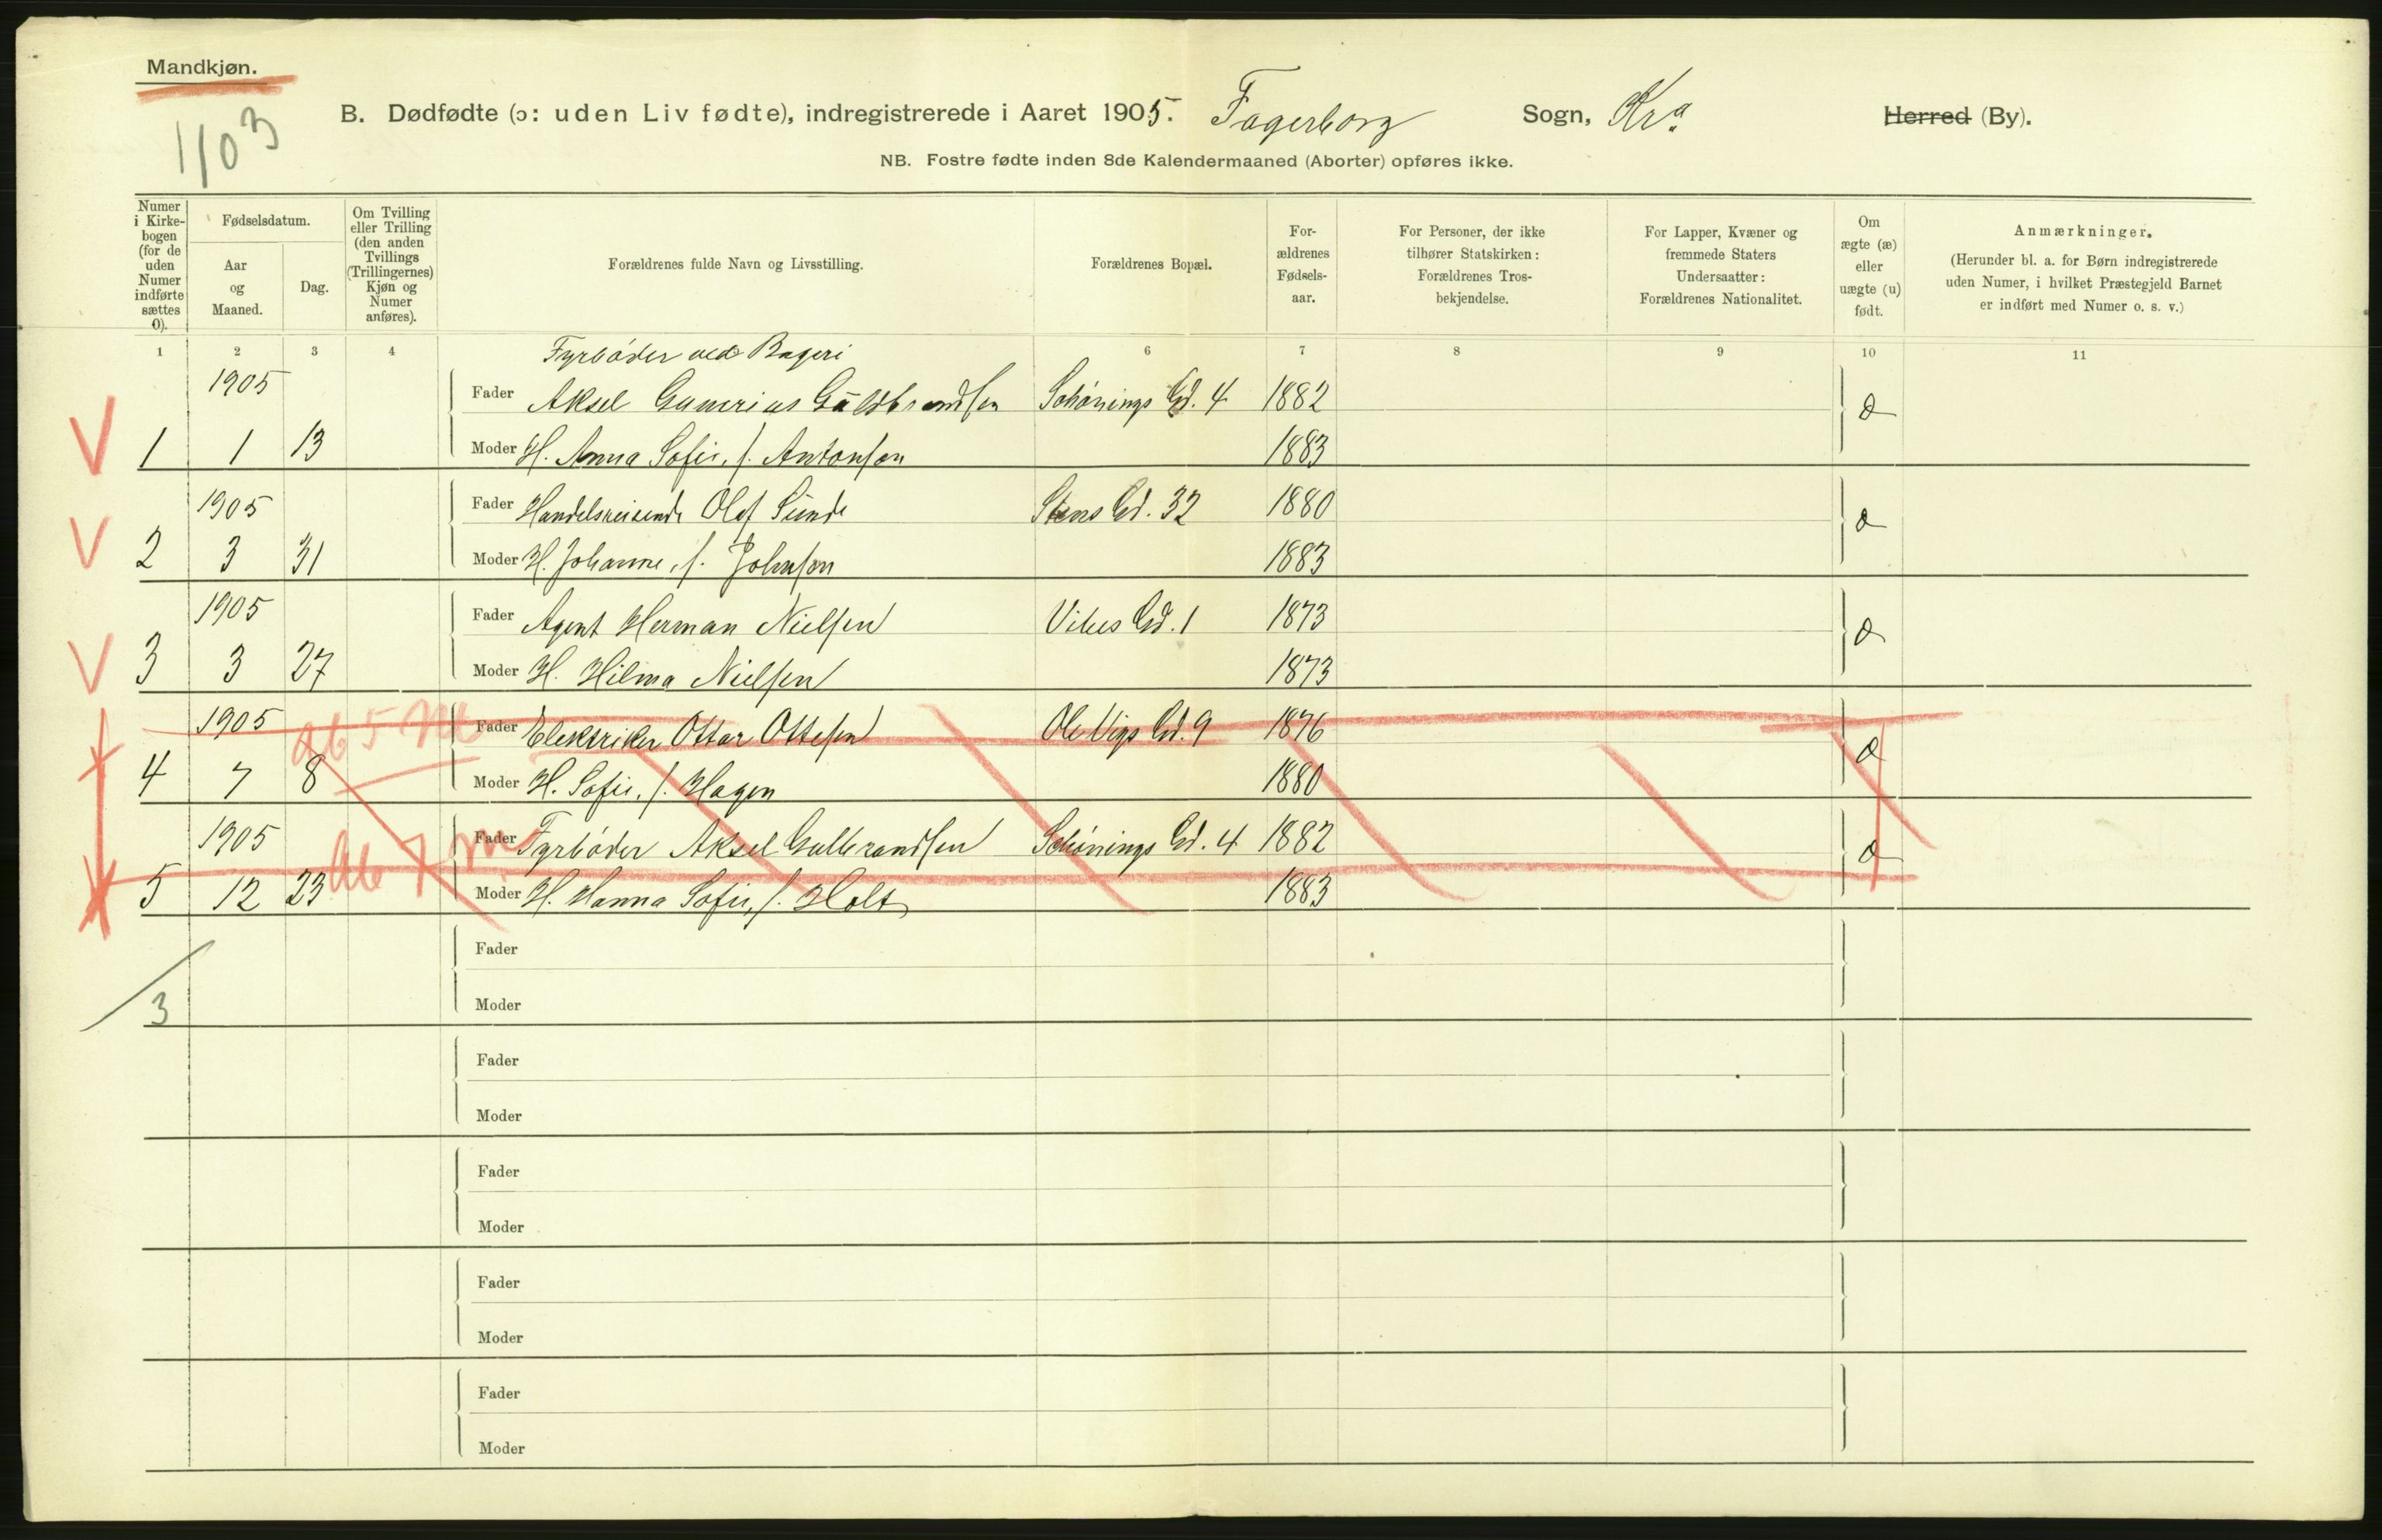 Mandkjøn.
1103
B. Dødfødte (ɔ: uden Liv fødte), indregistrerede i Aaret 1905. Fagerborg Sogn, Kra. Herred (By).
NB. Fostre fødte inden 8de Kalendermaaned (Aborter) opføres ikke.
Numer i Kirke-bogen (for de uden Numer indførte sættes 0).
Fødselsdatum.
Aar og Maaned.
Dag.
Om Tvilling eller Trilling (den anden Tvillings (Trillingernes) Kjøn og Numer anføres).
Forældrenes fulde Navn og Livsstilling.
Forældrenes Bopæl.
For-ældrenes Fødsels-aar.
For Personer, der ikke tilhører Statskirken: Forældrenes Tros-bekjendelse.
For Lapper, Kvæner og fremmede Staters Undersaatter: Forældrenes Nationalitet.
Om ægte (æ) eller uægte (u) født.
Anmærkninger.
(Herunder bl. a. for Børn indregistrerede uden Numer, i hvilket Præstegjeld Barnet er indført med Numer o. s. v.)
1 2 3 4 6 7 8 9 10 11
Fyrbøder ved Bageri
1905 Fader Aksel Gunerius Guldbrandsen Schønings Gd. 4 1882 æ
V 1 1 13 Moder H. Anna Sofie, f. Antonsen 1883
1905 Fader Handelsreisende Olof Sunde Stens Gd. 32 1880 æ
V 2 3 31 Moder H. Johanne, f. Johnsen 1883
1905 Fader Agent Herman Nielsen Vibes Gd. 1 1873 æ
V 3 3 27 Moder H. Hilma Nielsen 1873
1905 Ab 5 M Fader Elektriker Ottar Ottesen Ole Vigs Gd. 9 1876 æ
4 7 8 Moder H. Sofie, f. Hagen 1880
1905 Ab 7 m Fader Fyrbøder Aksel Gulbrandsen Schønings Gd. 4 1882 æ
5 12 23 Moder H. Hanna Sofie, f. Holt 1883
Fader
3 Moder
Fader
Moder
Fader
Moder
Fader
Moder
Fader
Moder